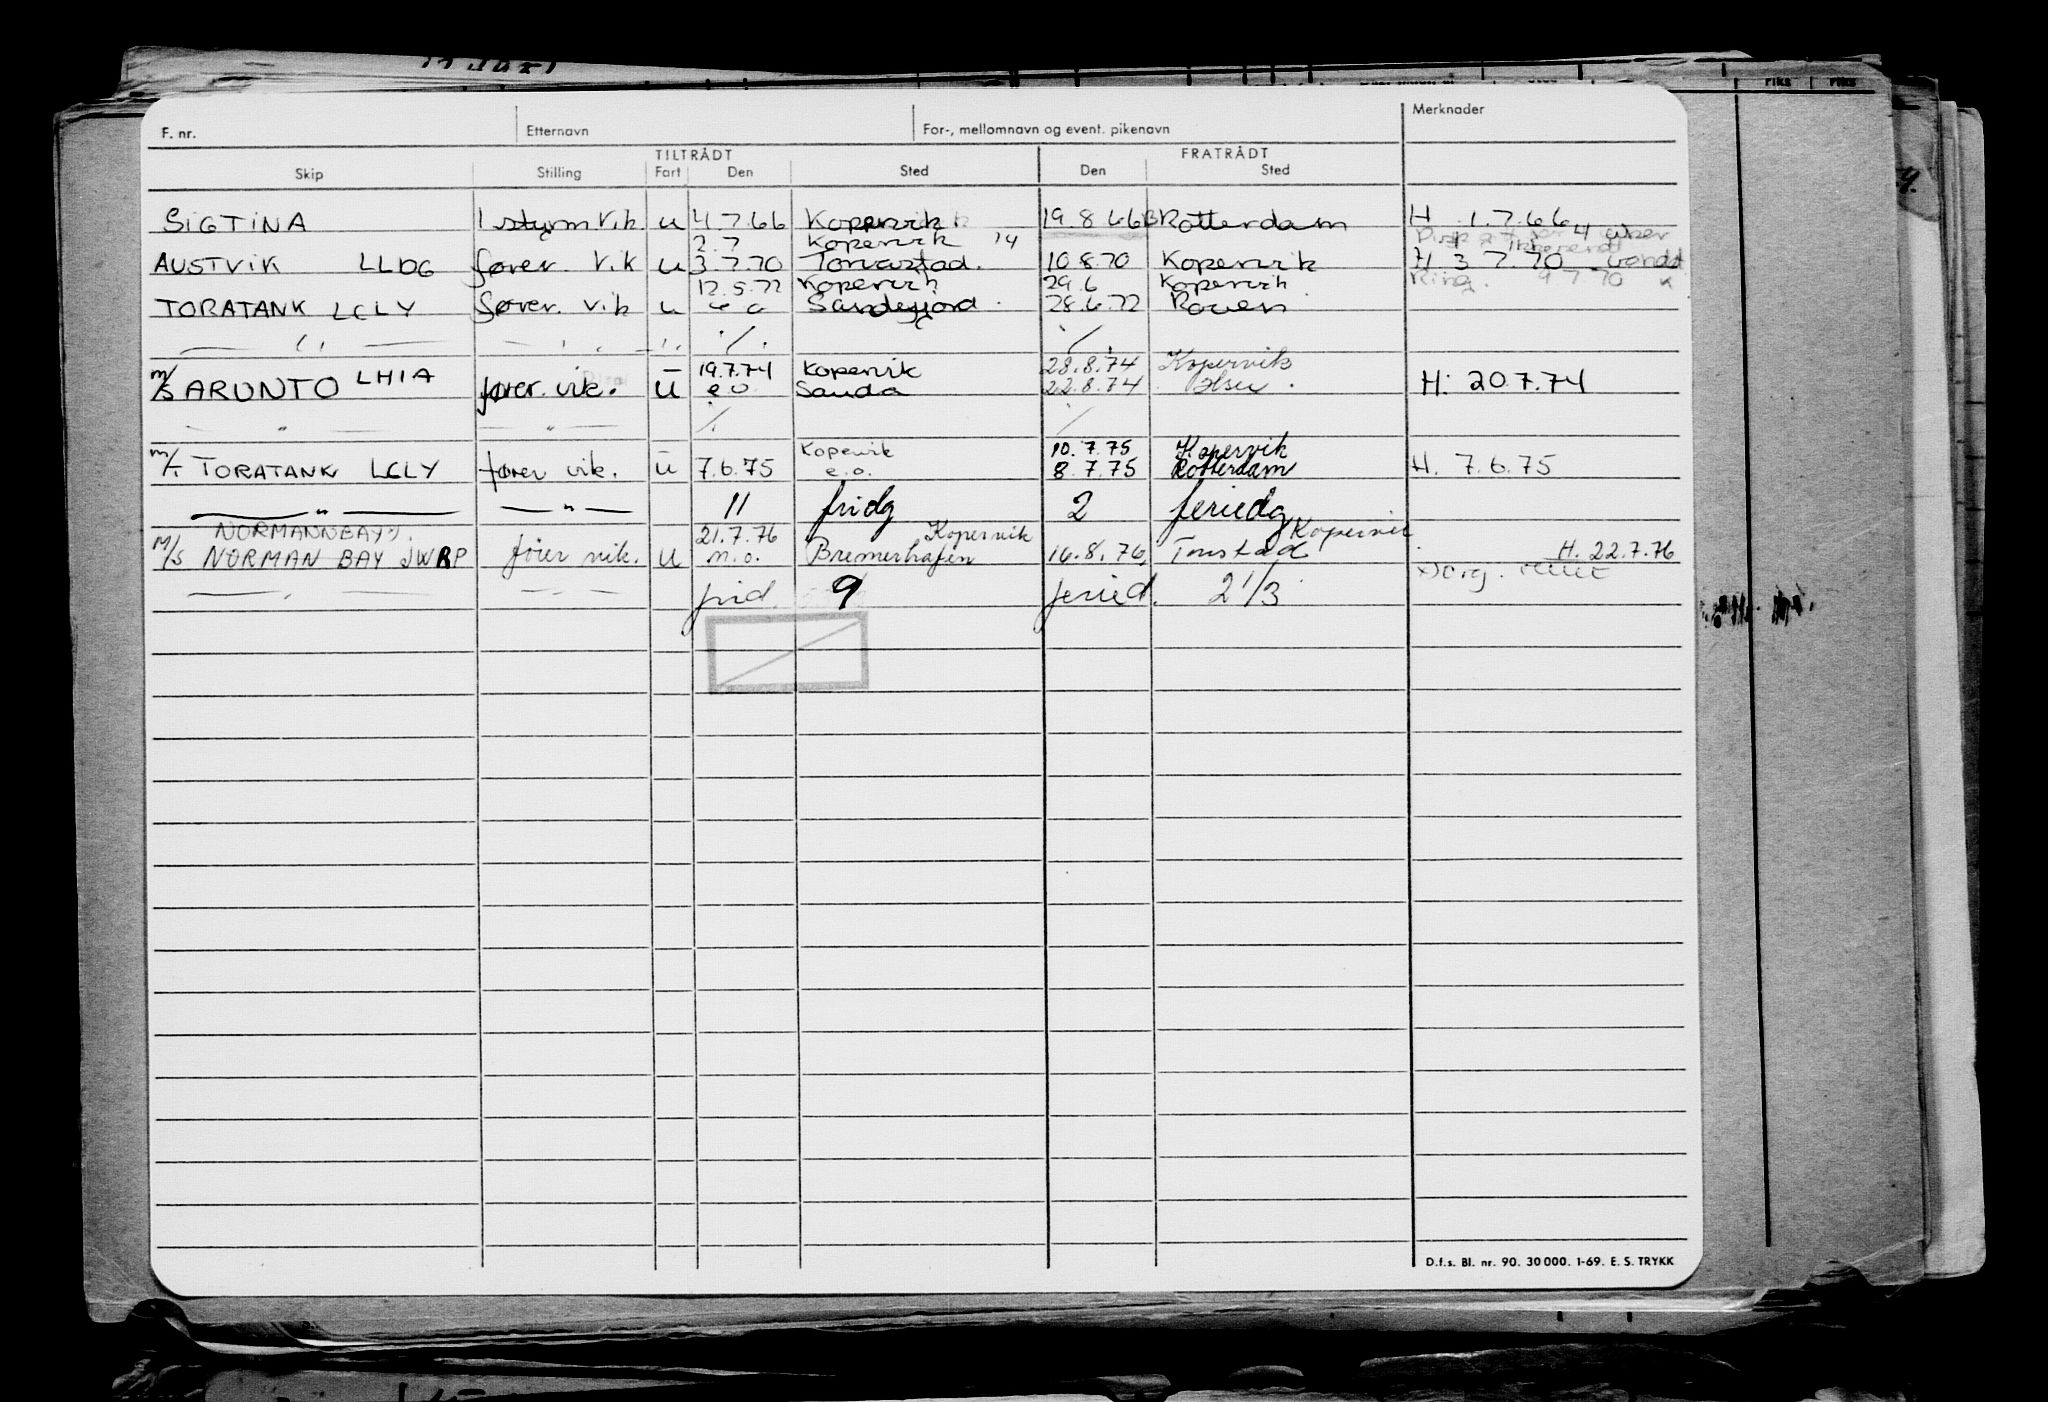 F. nr. Etternavn For-, mellomnavn og event. pikenavn Merknader
TILTRÅDT FRATRÅDT
Skip Stilling Fart Den Sted Den Sted
SIGTINA 1 styrm vik. u 4.7.66 Kopervik 19.8.66 Rotterdam H 1.7.66
2.7 Kopervik 14
AUSTVIK LLDG fører. vik u 3.7.70 Torvastad. 10.8.70 Kopervik H 3 7.70
12.5.72 Kopervik 29.6 Kopervik Ring. 9 7 70
TORATANK LCLY fører. vik u e o Sandefjord. 28.6.72 Rouen
— " — — " — " ./. ./.
19.7.74 Kopervik 28.8.74 Kopervik
m/s ARUNTO LHIA fører. vik. u e.o. Sauda 22.8.74 H: 20.7.74
— " — — " — ./. ./.
Kopervik 10.7.75 Kopervik
m/t TORATANK LCLY fører vik. u 7.6.75 e.o. 8.7.75 Rotterdam H. 7.6.75
— " — — " — 11 fridg 2 feriedg
NORMANNBAY 21.7.76 Kopervik Kopervik
M/S NORMAN BAY JWRP fører vik. u m.o. Bremerhafen 16.8.76 Tonstad H. 22.7.76
— " — — " — frid. 9 feried. 2 1/3
D.f.s. Bl. nr. 90. 30 000. 1-69. E. S. TRYKK